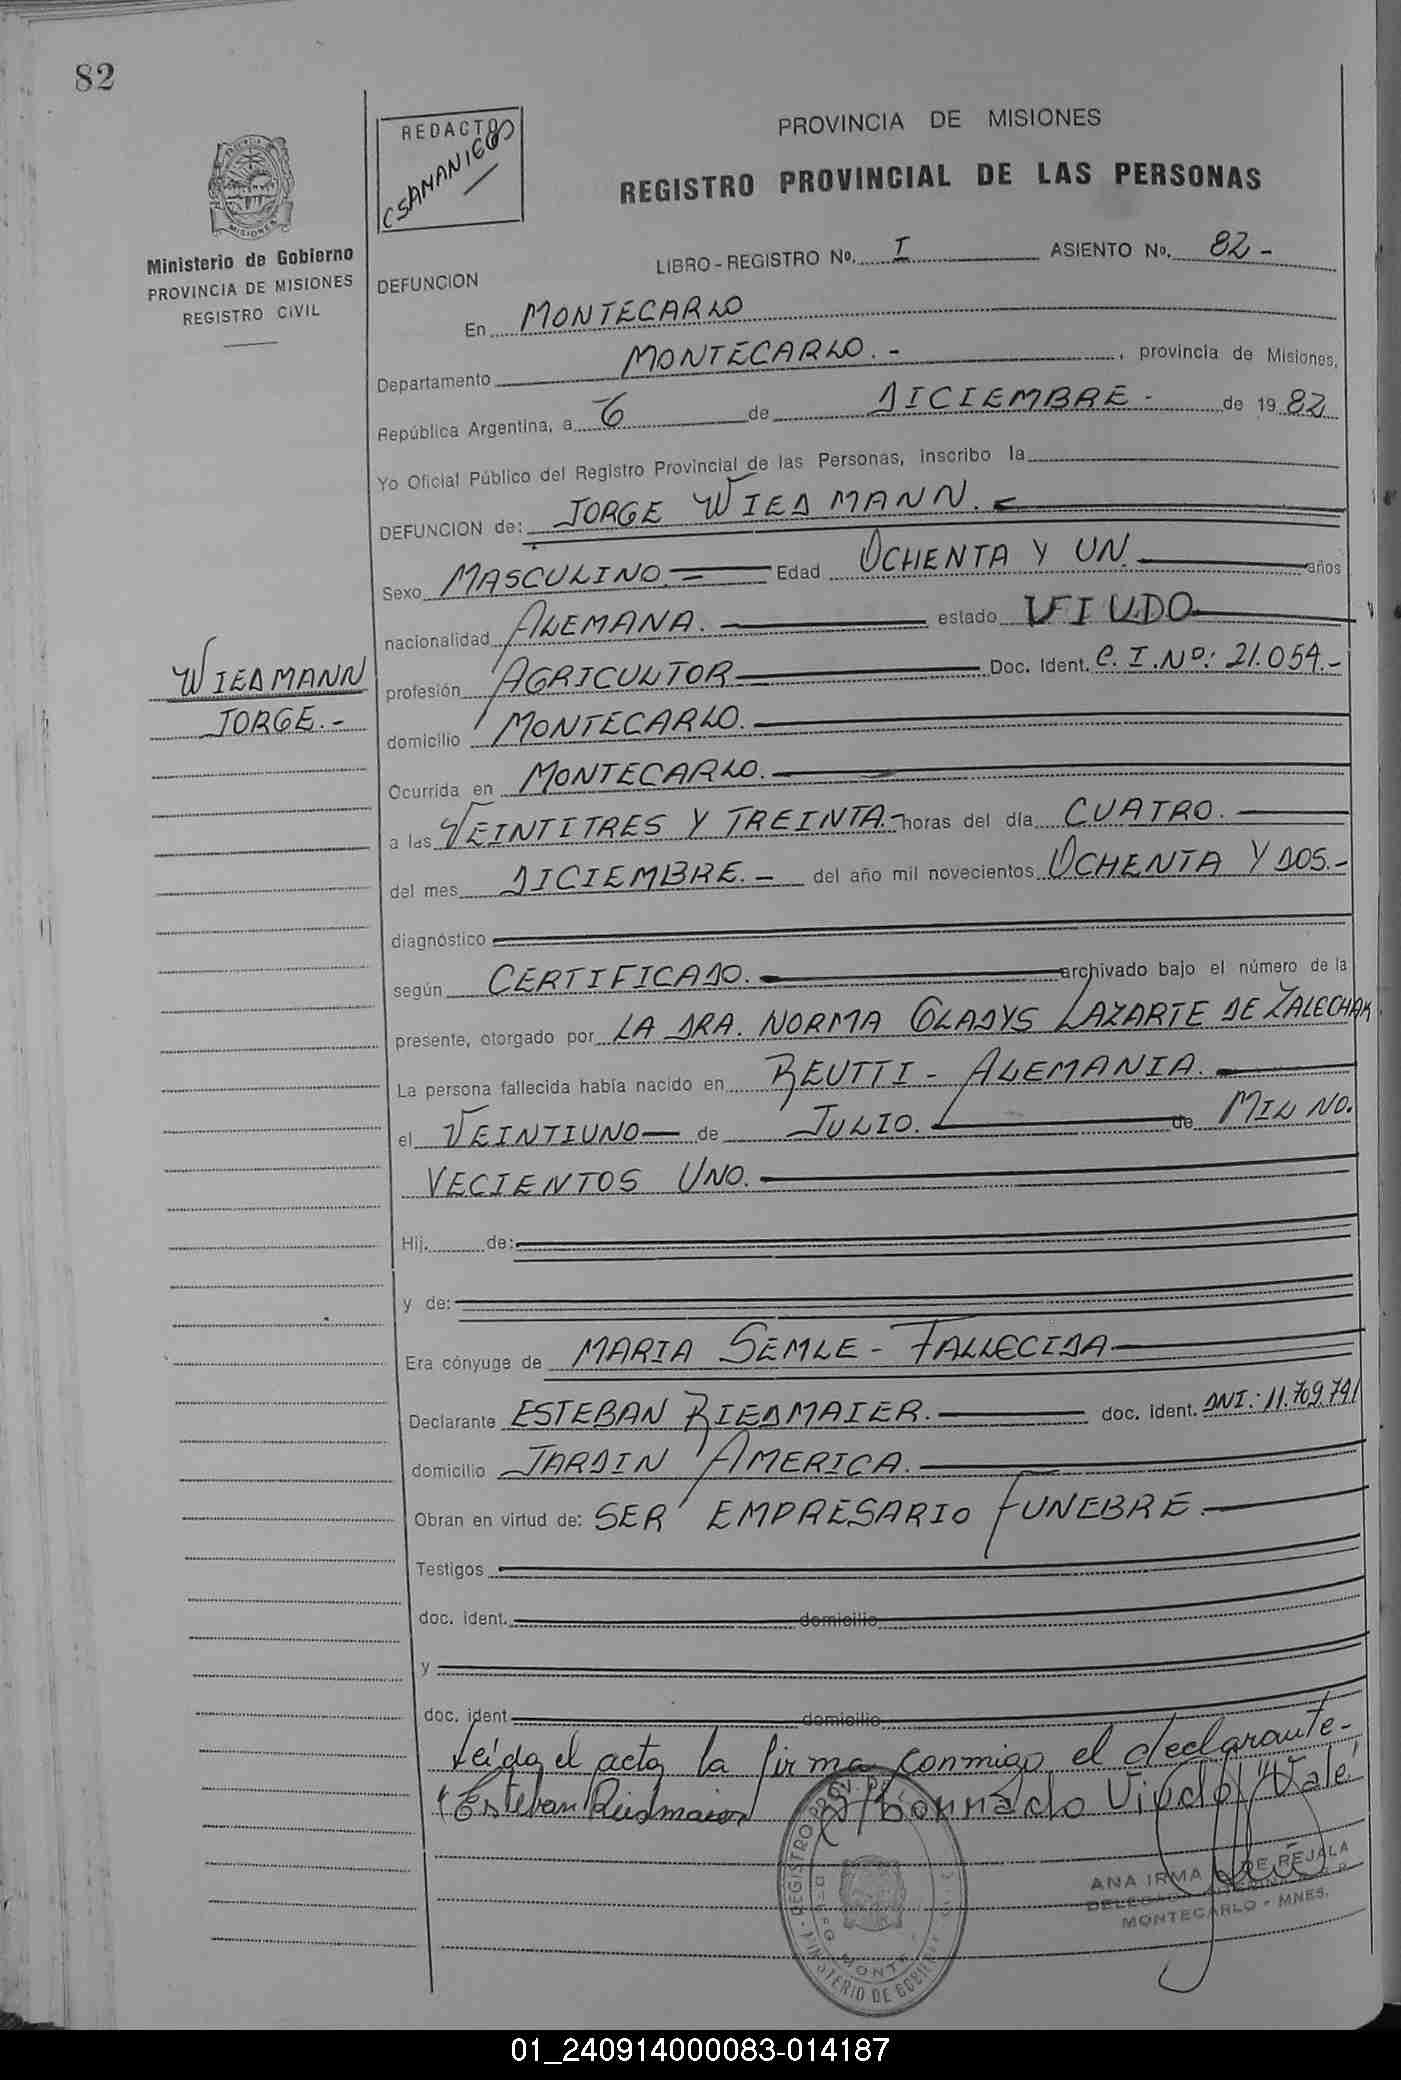 82
REDACTO
CSAMANIEGO
PROVINCIA DE MISIONES
REGISTRO PROVINCIAL DE LAS PERSONAS
MISIONES
Ministerio de Gobierno
PROVINCIA DE MISIONES
REGISTRO CIVIL
LIBRO-REGISTRO No. I ASIENTO No. 82-
DEFUNCION
En MONTECARLO
Departamento MONTECARLO.- , provincia de Misiones,
República Argentina, a 6 de DICIEMBRE- de 1982
Yo Oficial Público del Registro Provincial de las Personas, inscribo la
DEFUNCION de: JORGE WIEDMANN.
Sexo MASCULINO.= Edad OCHENTA Y UN. años
nacionalidad ALEMANA. estado VIUDO
WIEDMANN
JORGE.-
profesión AGRICULTOR Doc. Ident. C.I.Nº: 21.054.-
domicilio MONTECARLO.
Ocurrida en MONTECARLO.
a las VEINTITRES Y TREINTA.- horas del día CUATRO.
del mes DICIEMBRE.- del año mil novecientos OCHENTA Y DOS.-
diagnóstico
según CERTIFICADO. archivado bajo el número de la
presente, otorgado por LA DRA. NORMA GLADYS LAZARTE DE ZALECHAK
La persona fallecida había nacido en REUTTI - ALEMANIA.
el VEINTIUNO de JULIO. de MIL NO.
VECIENTOS UNO.
Hij. de:
y de:
Era cónyuge de MARIA SEMLE - FALLECIDA
Declarante ESTEBAN RIEDMAIER. doc. ident. DNI: 11.709.791
domicilio JARDIN AMERICA.
Obran en virtud de: SER EMPRESARIO FUNEBRE.
Testigos
doc. ident. domicilio
y
doc. ident. domicilio
Leída el acta, la firma conmigo el declarante-
"Esteban Riedmaier" /borrado Viudo/ "Vale"
REGISTRO PROV. DE
MINISTERIO DE GOBIERNO
ANA IRMA DE REJALA
MONTECARLO - MNES.
01_240914000083-014187